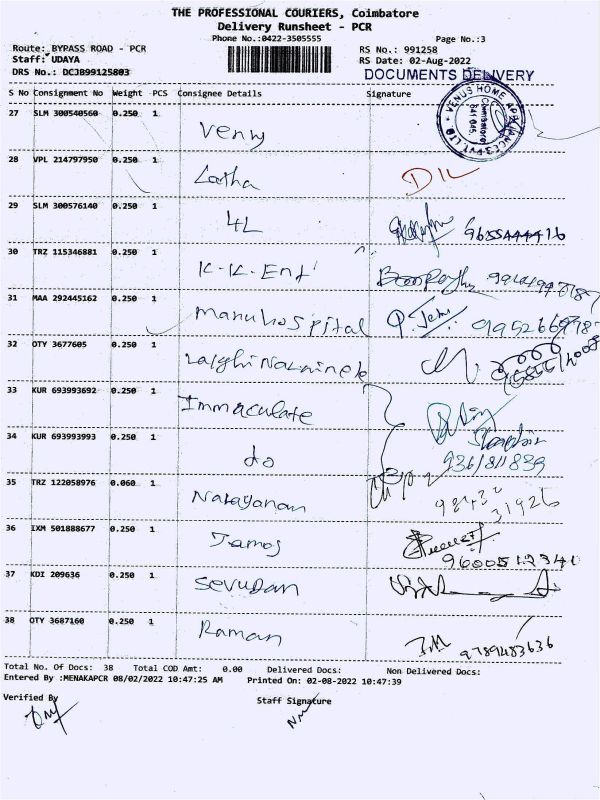 THE PROFESSIONAL COURIERS, Coimbatore
Delivery Runsheet - PCR
Phone No.:0422-3505555 Page No.:3
Route: BYPASS ROAD - PCR RS No.: 991258
Staff: UDAYA RS Date: 02-Aug-2022
DRS No.: DCJB99125803 DOCUMENTS DELIVERY
S No Consignment No Weight PCS Consignee Details Signature
VENUS HOME APPLIANCES PVT. LTD
Coimbatore
641 045.
27 SLM 300540560 0.250 1 Venny
28 VPL 214797950 0.250 1 Latha
29 SLM 300576140 0.250 1 4L 9655444416
30 TRZ 115346881 0.250 1 K.K. Ent
31 MAA 292445162 0.250 1 Manu hospital
32 OTY 3677605 0.250 1
33 KUR 693993692 0.250 1 Immaculate
34 KUR 693993993 0.250 1 do
35 TRZ 122058976 0.060 1 Narayanan 31926
36 IXM 501888677 0.250 1 James 9600512340
37 KDI 209636 0.250 1 Sevudan
38 OTY 3687160 0.250 1 Raman 9789483636
Total No. Of Docs: 38 Total COD Amt: 0.00 Delivered Docs: Non Delivered Docs:
Entered By :MENAKAPCR 08/02/2022 10:47:25 AM Printed On: 02-08-2022 10:47:39
Verified By Staff Signature